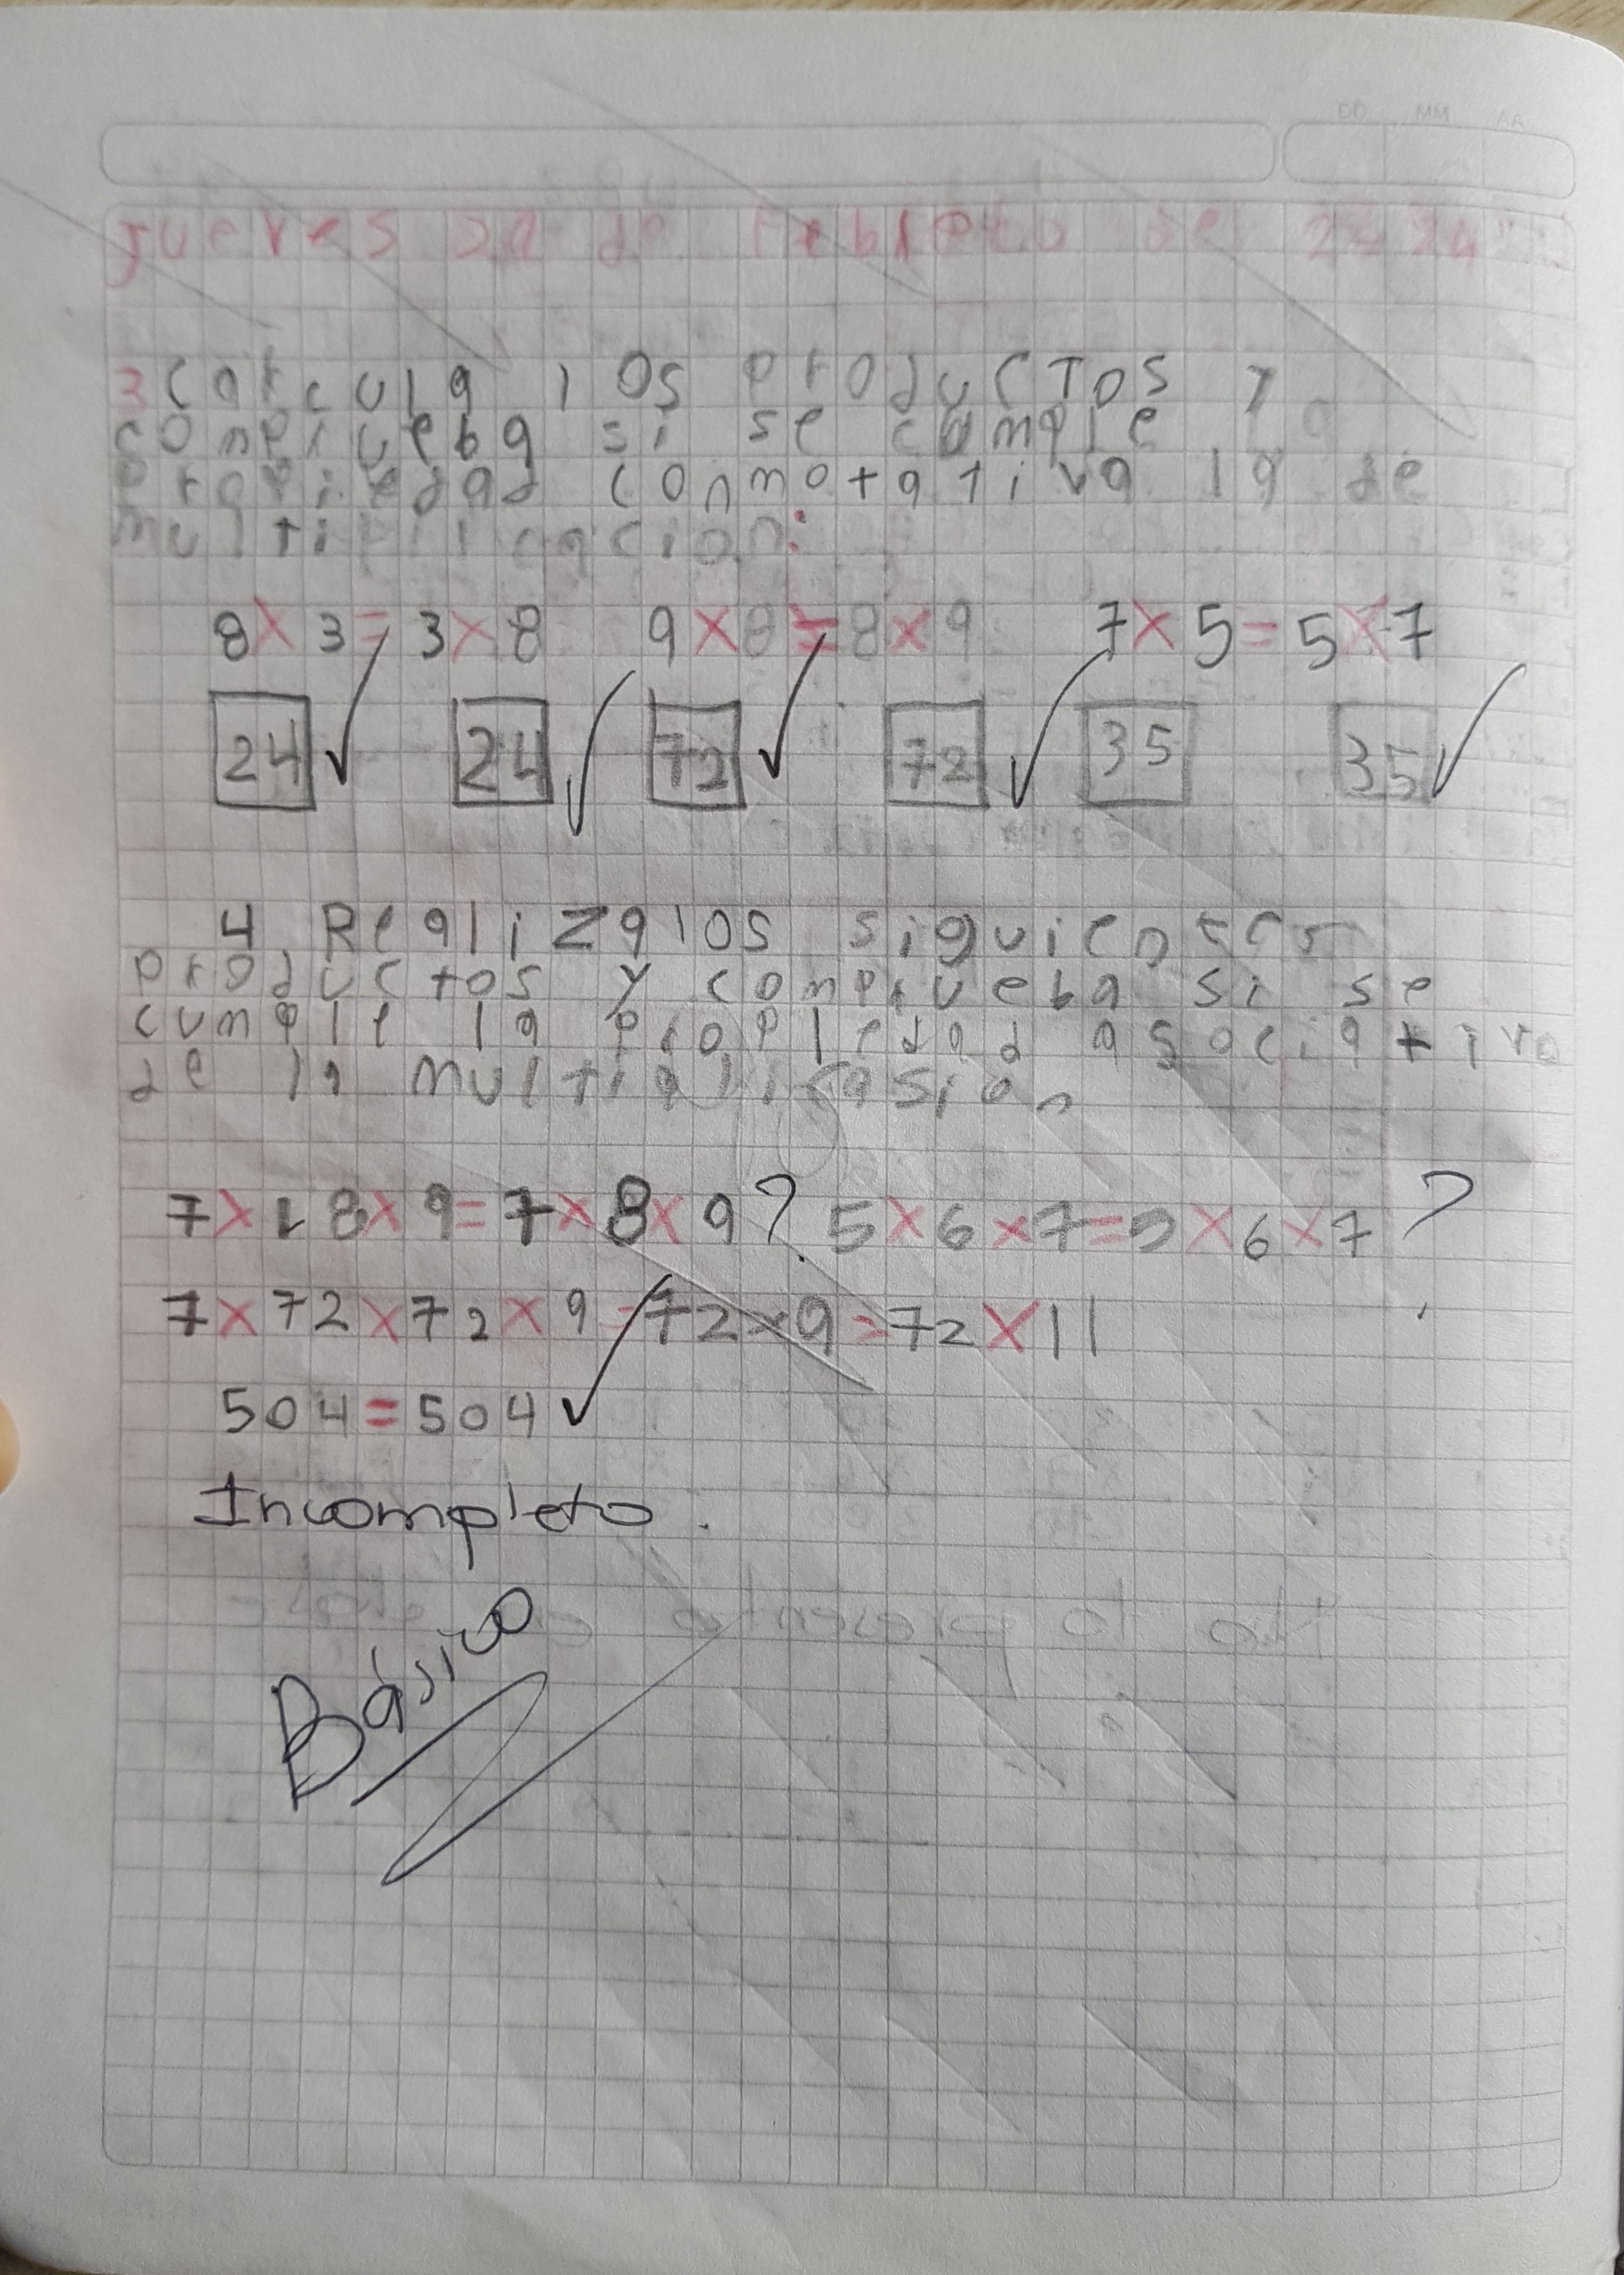 DD MM AA
jueves 29 de febrero de 2024
3 Calcula los productos y
comprueba si se cumple la
propiedad conmotativa la de
multiplicacion:
8 x 3 = 3 x 8 9 x 8 = 8 x 9 7 x 5 = 5 x 7
24 24 72 72 35 35
4 Realiza los siguien
productos y comprueba si se
cumple la propiedad asociativa
de la multiplicasion
7 x 1 8 x 9 = 7 x 8 x 9 ? 5 x 6 x 7 = 5 x 6 x 7 ?
7 x 72 x 72 x 9 = 72 x 9 = 72 x 11
504 = 504
Incompleto.
Básico